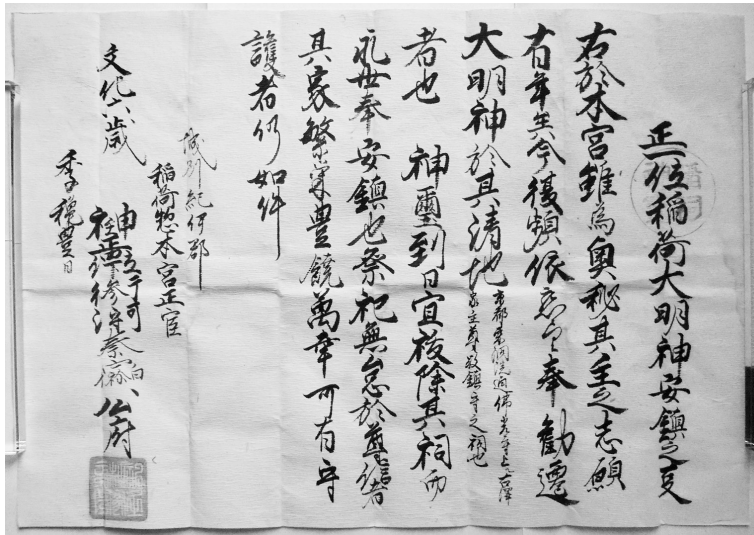 正一位稲荷大明神安鎮之事
右於本宮雖為奥秘其主之志願
有年矣今復頻依懇望奉勧遷
大明神於其清地
京都 洞院通仏光寺上 
家主尊敬鎮守之祠也
者也 神璽到日宜祓除其祠而
永世奉安鎮也祭祀無怠於尊信者
其家繁栄豊饒萬幸可有守
護者仍如件
城州紀伊郡
稲荷惣本宮正官
文化六歳
季穐豊日
神主
公府